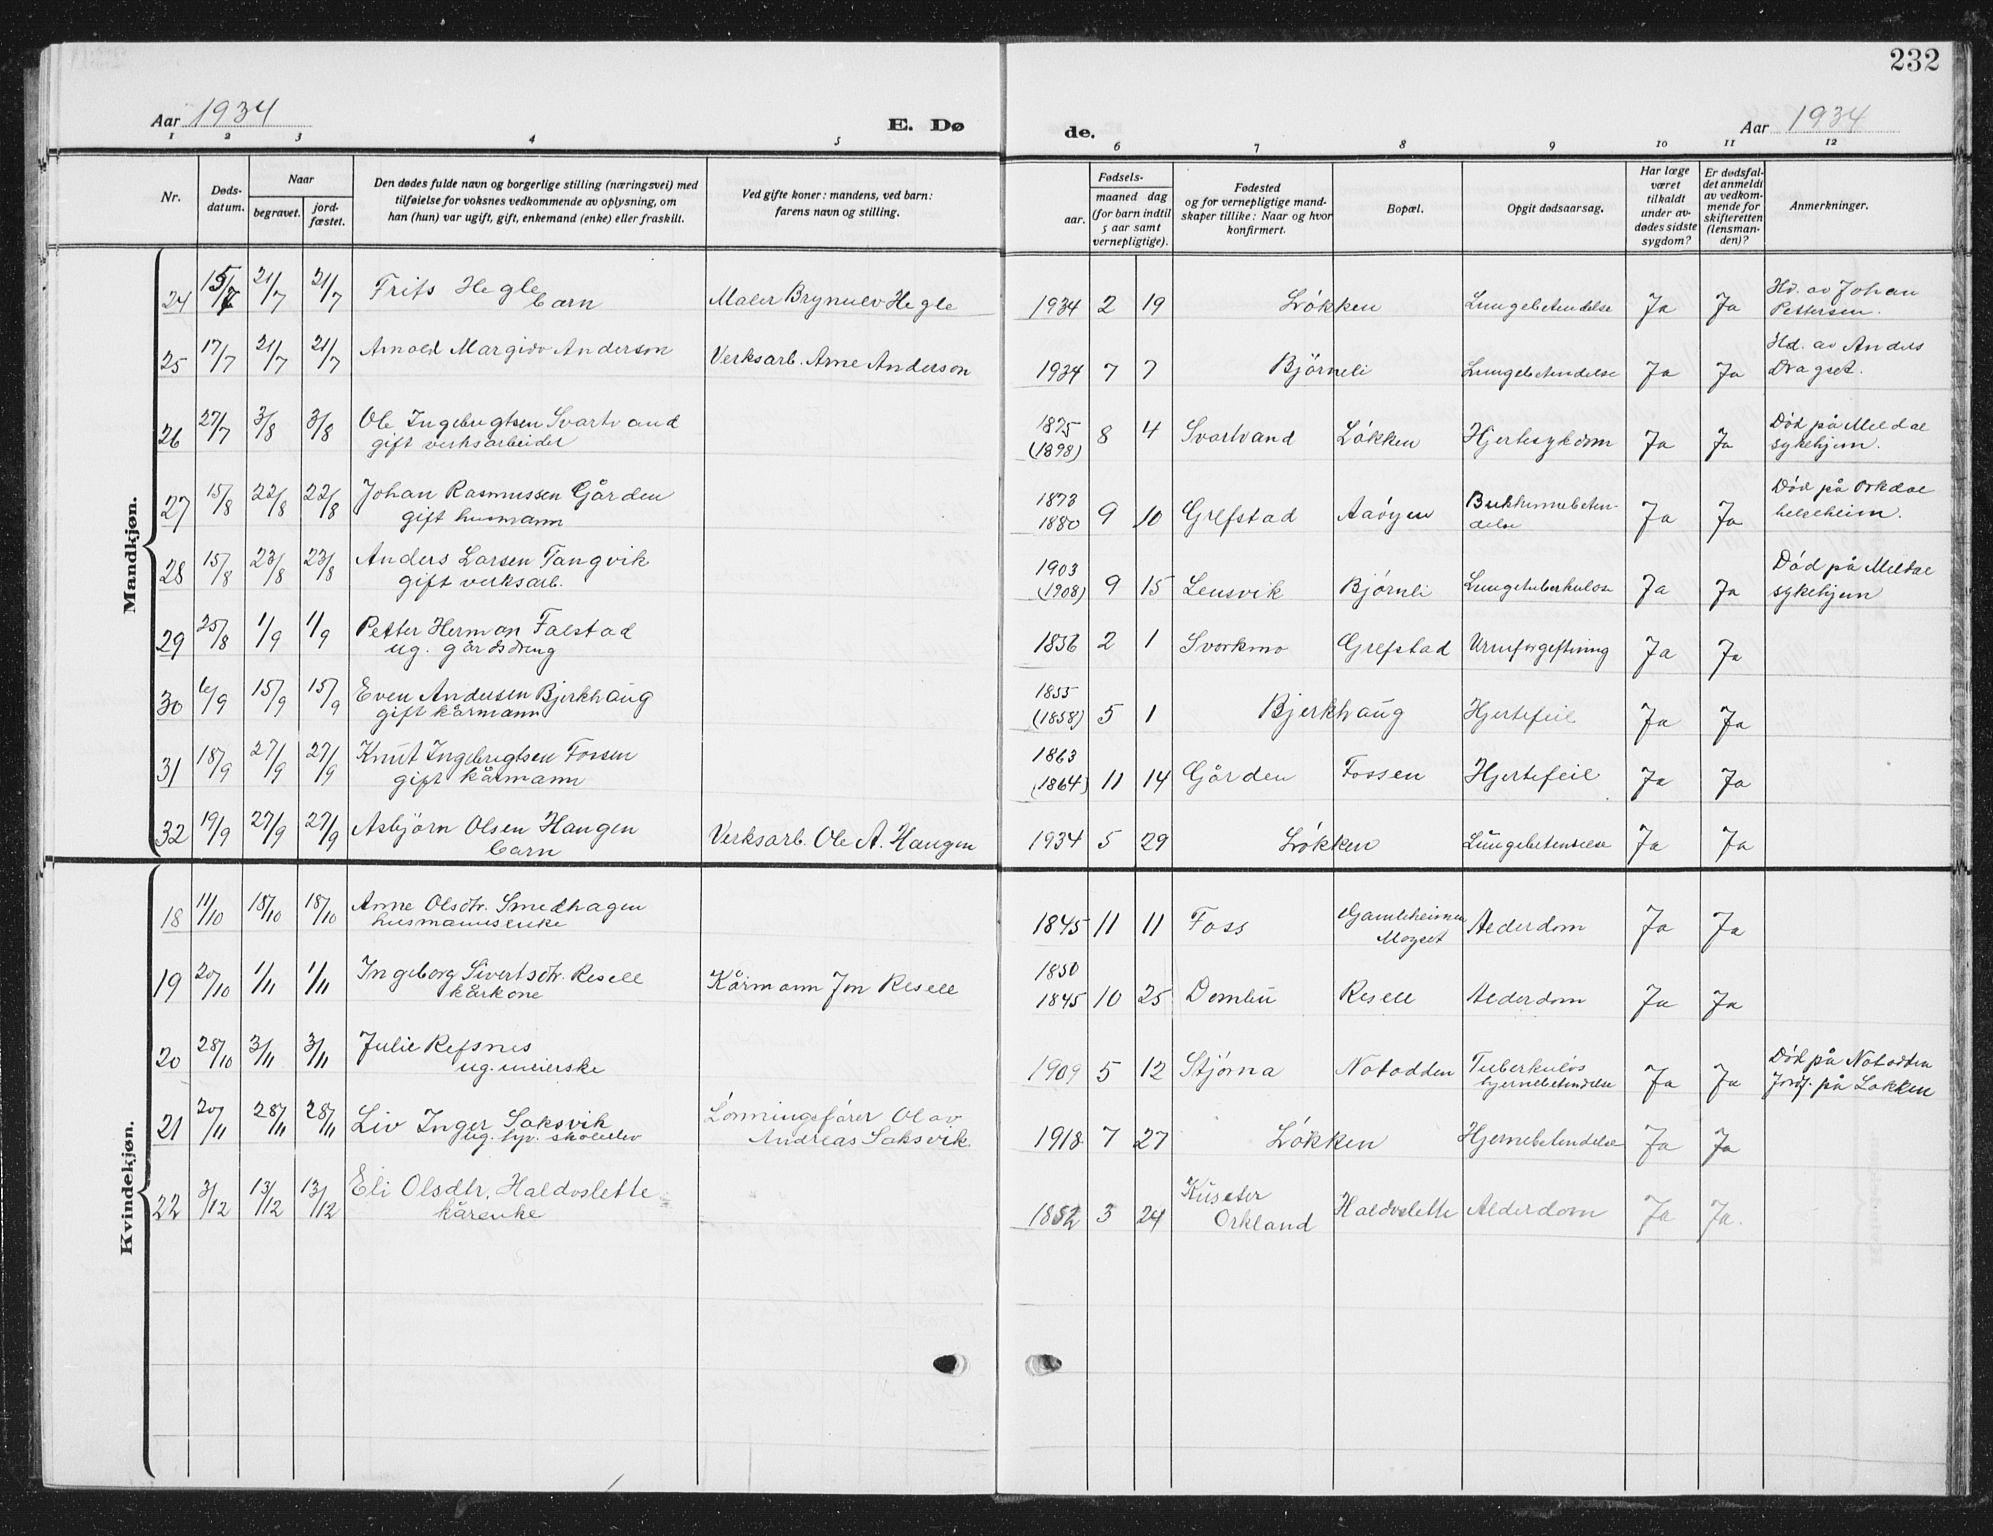 232
Aar 1934
E. Dø
de.
Aar 1934
1 2 3 4 5 6 7 8 9 10 11 12
Nr.
Døds-
datum.
Naar
begravet.
jord-
fæstet.
Den dødes fulde navn og borgerlige stilling (næringsvei) med
tilføielse for voksnes vedkommende av oplysning, om
han (hun) var ugift, gift, enkemand (enke) eller fraskilt.
Ved gifte koner: mandens, ved barn:
farens navn og stilling.
Fødsels-
aar.
maaned dag
(for barn indtil
5 aar samt
vernepligtige).
Fødested
og for vernepligtige mand-
skaper tillike: Naar og hvor
konfirmert.
Bopæl.
Opgit dødsaarsag.
Har læge
været
tilkaldt
under av-
dødes sidste
sygdom?
Er dødsfal-
det anmeldt
av vedkom-
mende for
skifteretten
(lensman-
den)?
Anmerkninger.
Mandkjøn.
24 15/7 21/7 21/7 Frits Hegle Maler Brynulv Hegle 1934 2 19 Løkken Lungebetendelse Ja Ja Hd. av Johan
barn Pettersen.
25 17/7 21/7 21/7 Arnold Margido Anderson Verksarb. Arne Anderson 1934 7 7 Bjørneli Lungebetendelse Ja Ja Hd. av Anders
Dragset.
26 27/7 3/8 3/8 Ole Ingebrigtsen Svartvand 1875 8 4 Svartvand Løkken Hjertesykdom Ja Ja Død på Meldal
gift verksarbeider (1898) sykehjem.
27 15/8 22/8 22/8 Johan Rasmussen Gården 1873 9 10 Grefstad Aavøyen Bukhinnebeten- Ja Ja Død på Orkdal
gift husmann 1880 delse helseheim.
28 15/8 23/8 23/8 Anders Larsen Tangvik 1903 9 15 Lensvik Bjørnli Lungetuberkulose Ja Ja Død på Meldal
gift verksarb. (1908) sykehjem
29 25/8 1/9 1/9 Petter Herman Falstad 1856 2 1 Svorkmo Grefstad Urinforgiftning Ja Ja
ug. gårdsdreng
30 6/9 15/9 15/9 Even Andersen Bjerkhaug 1855 5 1 Bjerkhaug Hjertefeil Ja Ja
gift kårmann (1858)
31 18/9 27/9 27/9 Knut Ingebrigtsen Fossen 1863 11 14 Gården Fossen Hjertefeil Ja Ja
gift kårmann (1864)
32 19/9 27/9 27/9 Asbjørn Olsen Haugen Verksarb. Ole A. Haugen 1934 5 29 Løkken Lungebetendelse Ja Ja
barn
Kvindekjøn.
18 11/10 18/10 18/10 Anne Olsdtr. Smedhagen 1845 11 11 Foss Gamleheimen Alderdom Ja Ja
husmannsenke Mogset
19 20/10 1/11 1/11 Ingeborg Sivertsdtr. Resell Kårmann Jon Resell 1850 10 25 Dombu Resell Alderdom Ja Ja
kårkone 1845
20 28/10 3/11 3/11 Julie Refsnes 1909 5 12 Stjørna Notodden Tuberkuløs Ja Ja Død på Notodden
ug. meierske hjernebetendelse Jordf. på Løkken
21 20/11 28/11 28/11 Liv Inger Saksvik Lønningsfører Olav 1918 7 27 Løkken Hjernebetendelse Ja Ja
ug. hjv. skoleelev Andreas Saksvik
22 3/12 13/12 13/12 Eli Olsdtr. Haldoslette 1852 3 24 Kuseter Haldoslette Alderdom Ja Ja.
kårenke Orkland